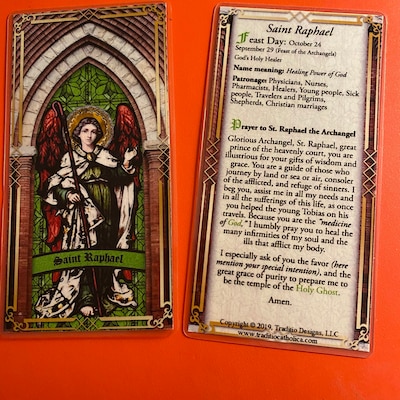 Saint Raphael
Saint Raphael
Feast Day: October 24
September 29 (Feast of the Archangels)
God's Holy Healer
Name meaning: Healing Power of God
Patronage: Physicians, Nurses,
Pharmacists, Healers, Young people, Sick
people, Travelers and Pilgrims,
Shepherds, Christian marriages
Prayer to St. Raphael the Archangel
Glorious Archangel, St. Raphael, great
prince of the heavenly court, you are
illustrious for your gifts of wisdom and
grace. You are a guide of those who
journey by land or sea or air, consoler
of the afflicted, and refuge of sinners. I
beg you, assist me in all my needs and
in all the sufferings of this life, as once
you helped the young Tobias on his
travels. Because you are the "medicine
of God," I humbly pray you to heal the
many infirmities of my soul and the
ills that afflict my body.
I especially ask of you the favor (here
mention your special intention), and the
great grace of purity to prepare me to
be the temple of the Holy Ghost.
Amen.
Copyright © 2019, Traditio Designs, LLC
www.traditiocatholica.com